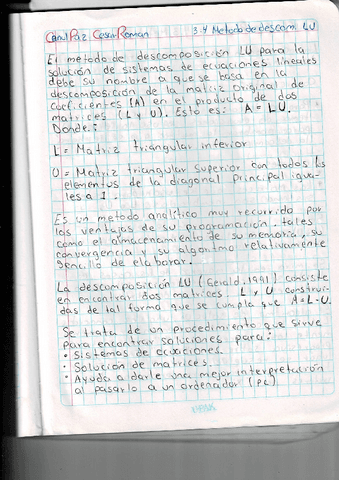 Canul Paz Cesar Roman 3.4 Metodo de descom. LU
El metodo de descomposición LU para la
solución de sistemas de ecuaciones lineales
debe su nombre a que se basa en la
descomposición de la matriz original de
coeficientes (A) en el producto de dos
matrices (L y U). Esto es: A = LU.
Donde.:
L = Matriz triangular inferior
U = Matriz triangular superior con todos los
elementos de la diagonal principal igua-
les a 1.
Es un metodo analítico muy recurrido por
las ventajas de su programación, tales
como el almacenamiento de su memoria, su
convergencia y su algoritmo relativamente
sencillo de elaborar.
La descomposición LU (Gerald, 1991) consiste
en encontrar dos matrices L y U construi-
das de tal forma que se cumpla que A=L-U.
Se trata de un procedimiento que sirve
para encontrar soluciones para:
• Sistemas de ecuaciones.
• Solución de matrices.
• Ayuda a darle una mejor interpretación
al pasarlo a un ordenador (PC).